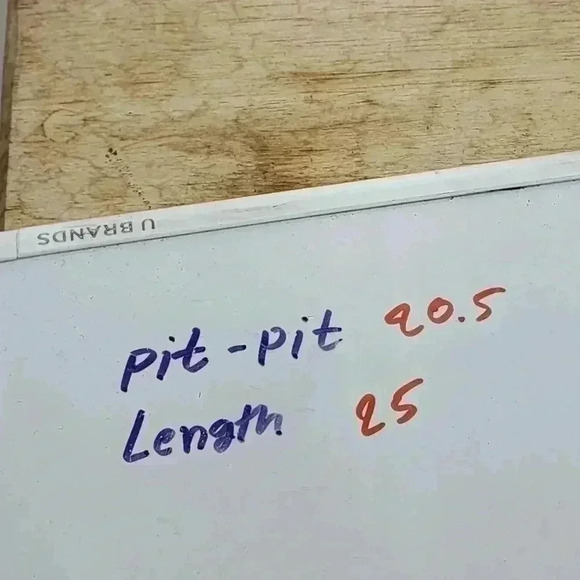 U BRANDS
pit-pit 20.5
Length 25